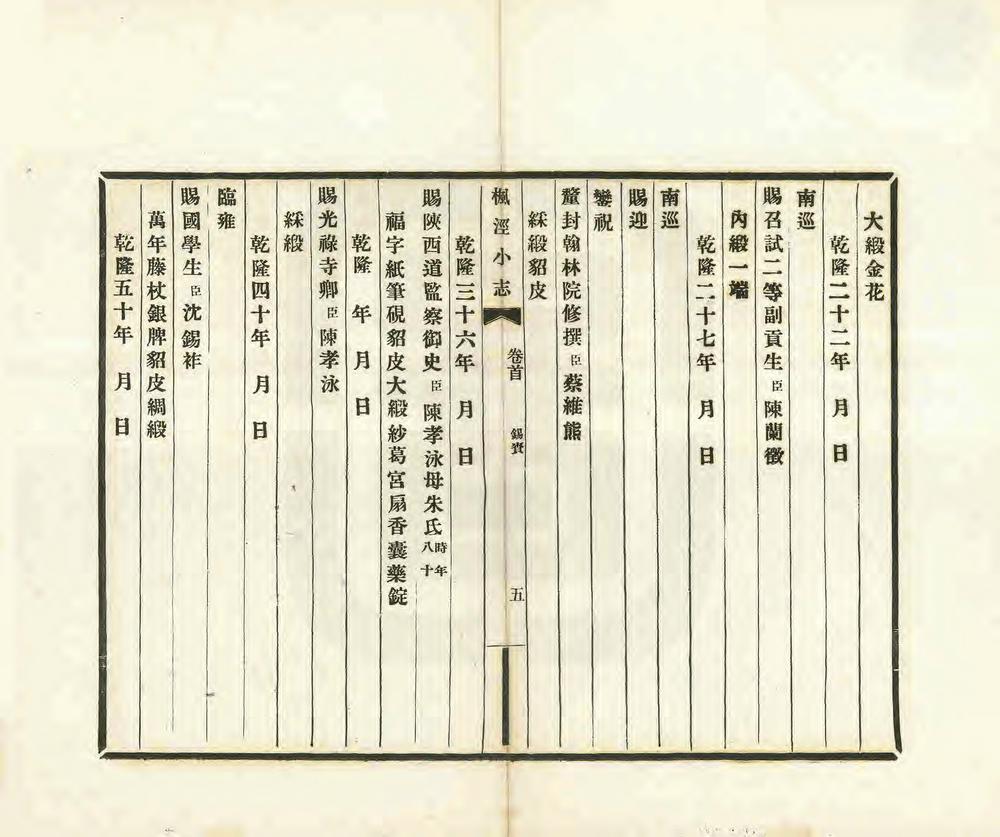 大緞金花
乾隆二十二年　月　日
南巡
賜召試二等副貢生臣陳蘭徵
內緞一端
乾隆二十七年　月　日
南巡
賜迎
鑾祝
釐封翰林院修撰臣蔡維熊
綵緞貂皮
楓涇小志　卷首　錫賚　五
乾隆三十六年　月　日
賜陝西道監察御史臣陳孝泳母朱氏時年八十
福字紙筆硯貂皮大緞紗葛宮扇香囊藥錠
乾隆　年　月　日
賜光祿寺卿臣陳孝泳
綵緞
乾隆四十年　月　日
臨雍
賜國學生臣沈錫祚
萬年藤杖銀牌貂皮綢緞
乾隆五十年　月　日